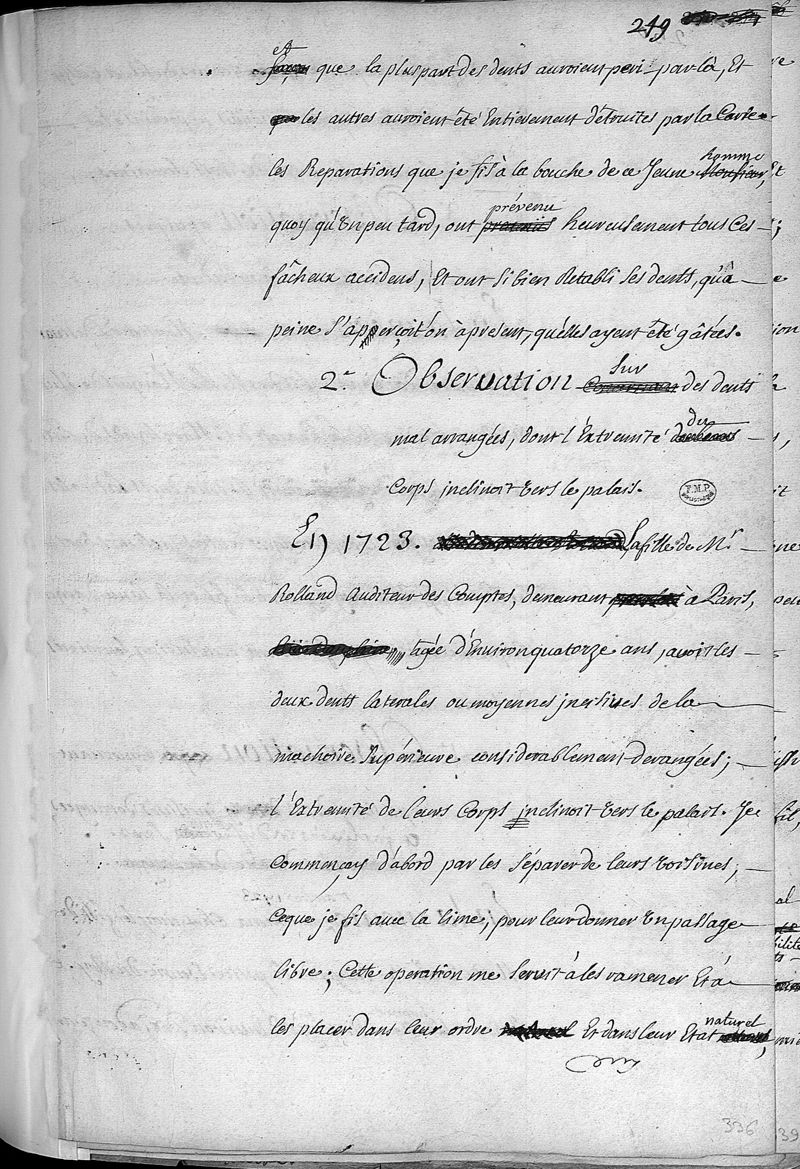 249
et
que la pluspart des dents auroient peri par là, Et
les autres auroient été Entierement détruites par la Carie
homme
les Reparations que je fis à la bouche de ce Jeune Monsieur, Et
prévenu
quoy qu'En peu tard, ont heureusement tous Ces
fâcheux accidens, Et ont si bien Retabli ses dents, qu'a
peine s'apperçoit on àpresent, qu'elles ayent été gâtées.
sur
2e Observation des dents
du
mal arrangées, dont l'Extremité
Corps jnclinoit vers le palais.
F.M.P.
En 1723. la fille de Mr
Rolland Auditeur des Comptes, demeurant à Paris,
agée d'Environ quatorze ans, avoit les
deux dents laterales ou moyennes jncisives de la
machoire Supérieure considerablement derangées;
l'Extremité de leurs Corps jnclinoit vers le palais. Je
Commençay d'abord par les séparer de leurs voisines,
Ceque je fis avec la lime, pour leur donner Un passage
libre; Cette operation me servit à les ramener Et à
naturel
les placer dans leur ordre naturel Et dans leur Etat
336
39